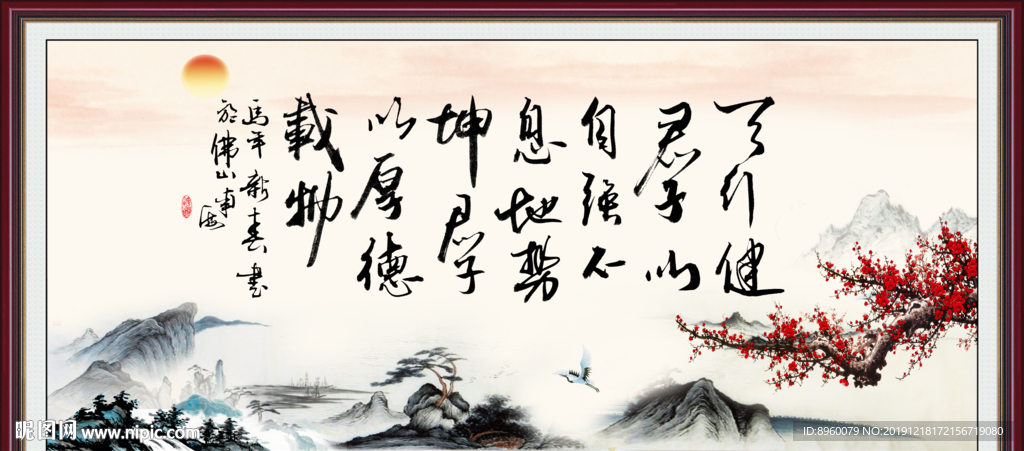 天行健
君子以
自强不
息地势
坤君子
以厚德
载物
马年新春书
於佛山南海
昵图网 www.nipic.com
ID:8960079 NO.20191218172156719080